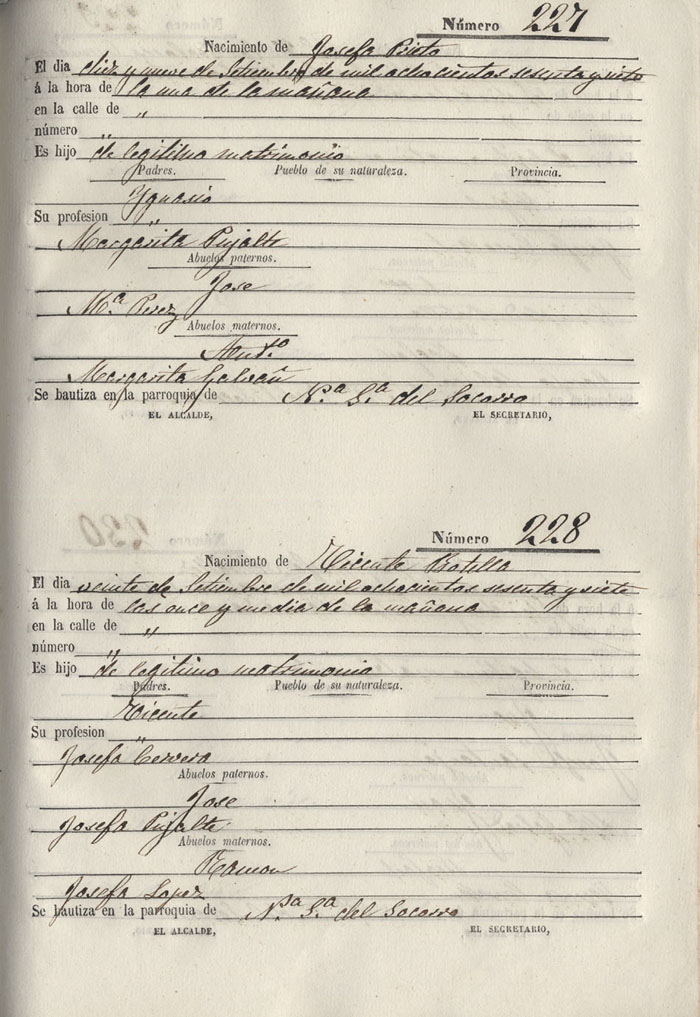 Número 227
Nacimiento de Josefa Prieto
El dia diez y nueve de Setiembre de mil ochocientos sesenta y siete
á la hora de la una de la mañana
en la calle de "
número "
Es hijo de legitimo matrimonio
Padres. Pueblo de su naturaleza. Provincia.
Ygnasio
Su profesion "
Margarita Pujalte
Abuelos paternos.
Jose
Mª Perez
Abuelos maternos.
Antº
Margarita Galvañ
Se bautiza en la parroquia de Nª Sª del Socorro
EL ALCALDE, EL SECRETARIO,
Número 228
Nacimiento de Vicente Botella
El dia veinte de Setiembre de mil ochocientos sesenta y siete
á la hora de las once y media de la mañana
en la calle de "
número "
Es hijo de legitimo matrimonio
Padres. Pueblo de su naturaleza. Provincia.
Vicente
Su profesion "
Josefa Cervera
Abuelos paternos.
Jose
Josefa Pujalte
Abuelos maternos.
Ramon
Josefa Lopez
Se bautiza en la parroquia de Nª Sª del Socorro
EL ALCALDE, EL SECRETARIO,